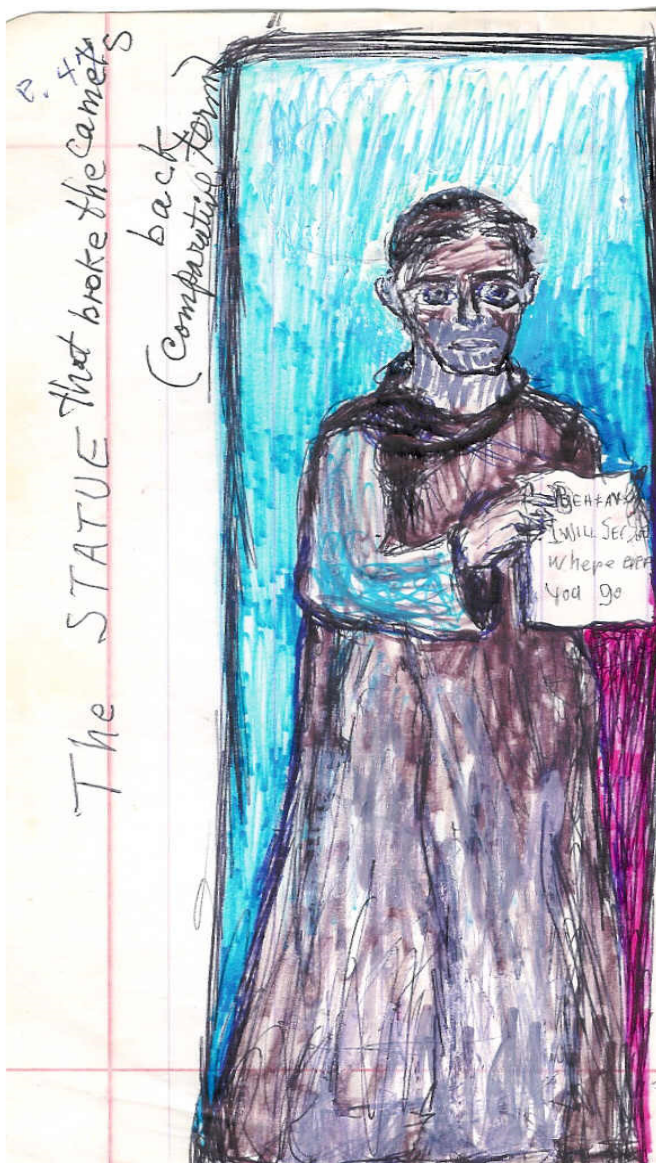 The STATUE that broke the camels
back
(comparative term)
I WILL SEE
where ever
You go